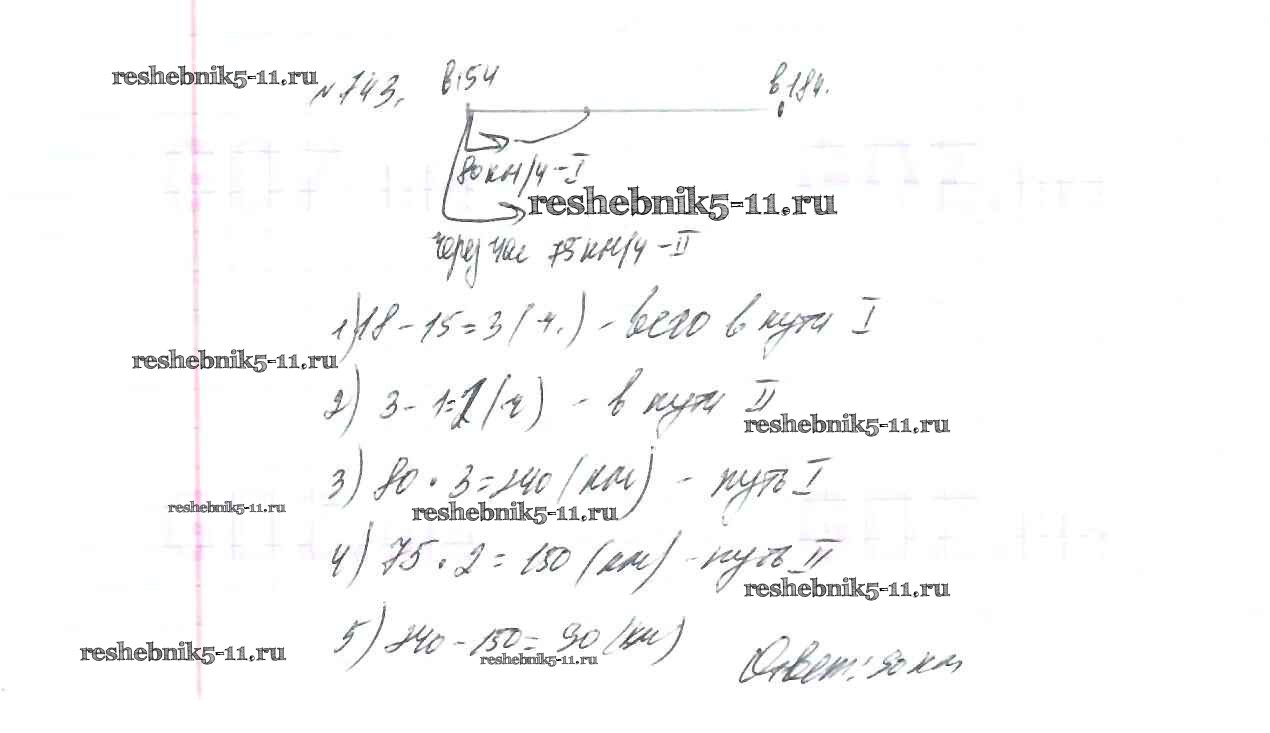 reshebnik5-11.ru
№743. в 15ч в 18ч.
80 км/ч - I
reshebnik5-11.ru
через час 75 км/ч - II
1) 18 - 15 = 3 (ч.) - всего в пути I
reshebnik5-11.ru
2) 3 - 1 = 2 (ч) - в пути II
reshebnik5-11.ru
3) 80 · 3 = 240 (км) - путь I
reshebnik5-11.ru
reshebnik5-11.ru
4) 75 · 2 = 150 (км) - путь II
reshebnik5-11.ru
5) 240 - 150 = 90 (км)
reshebnik5-11.ru
reshebnik5-11.ru
Ответ: 90 км